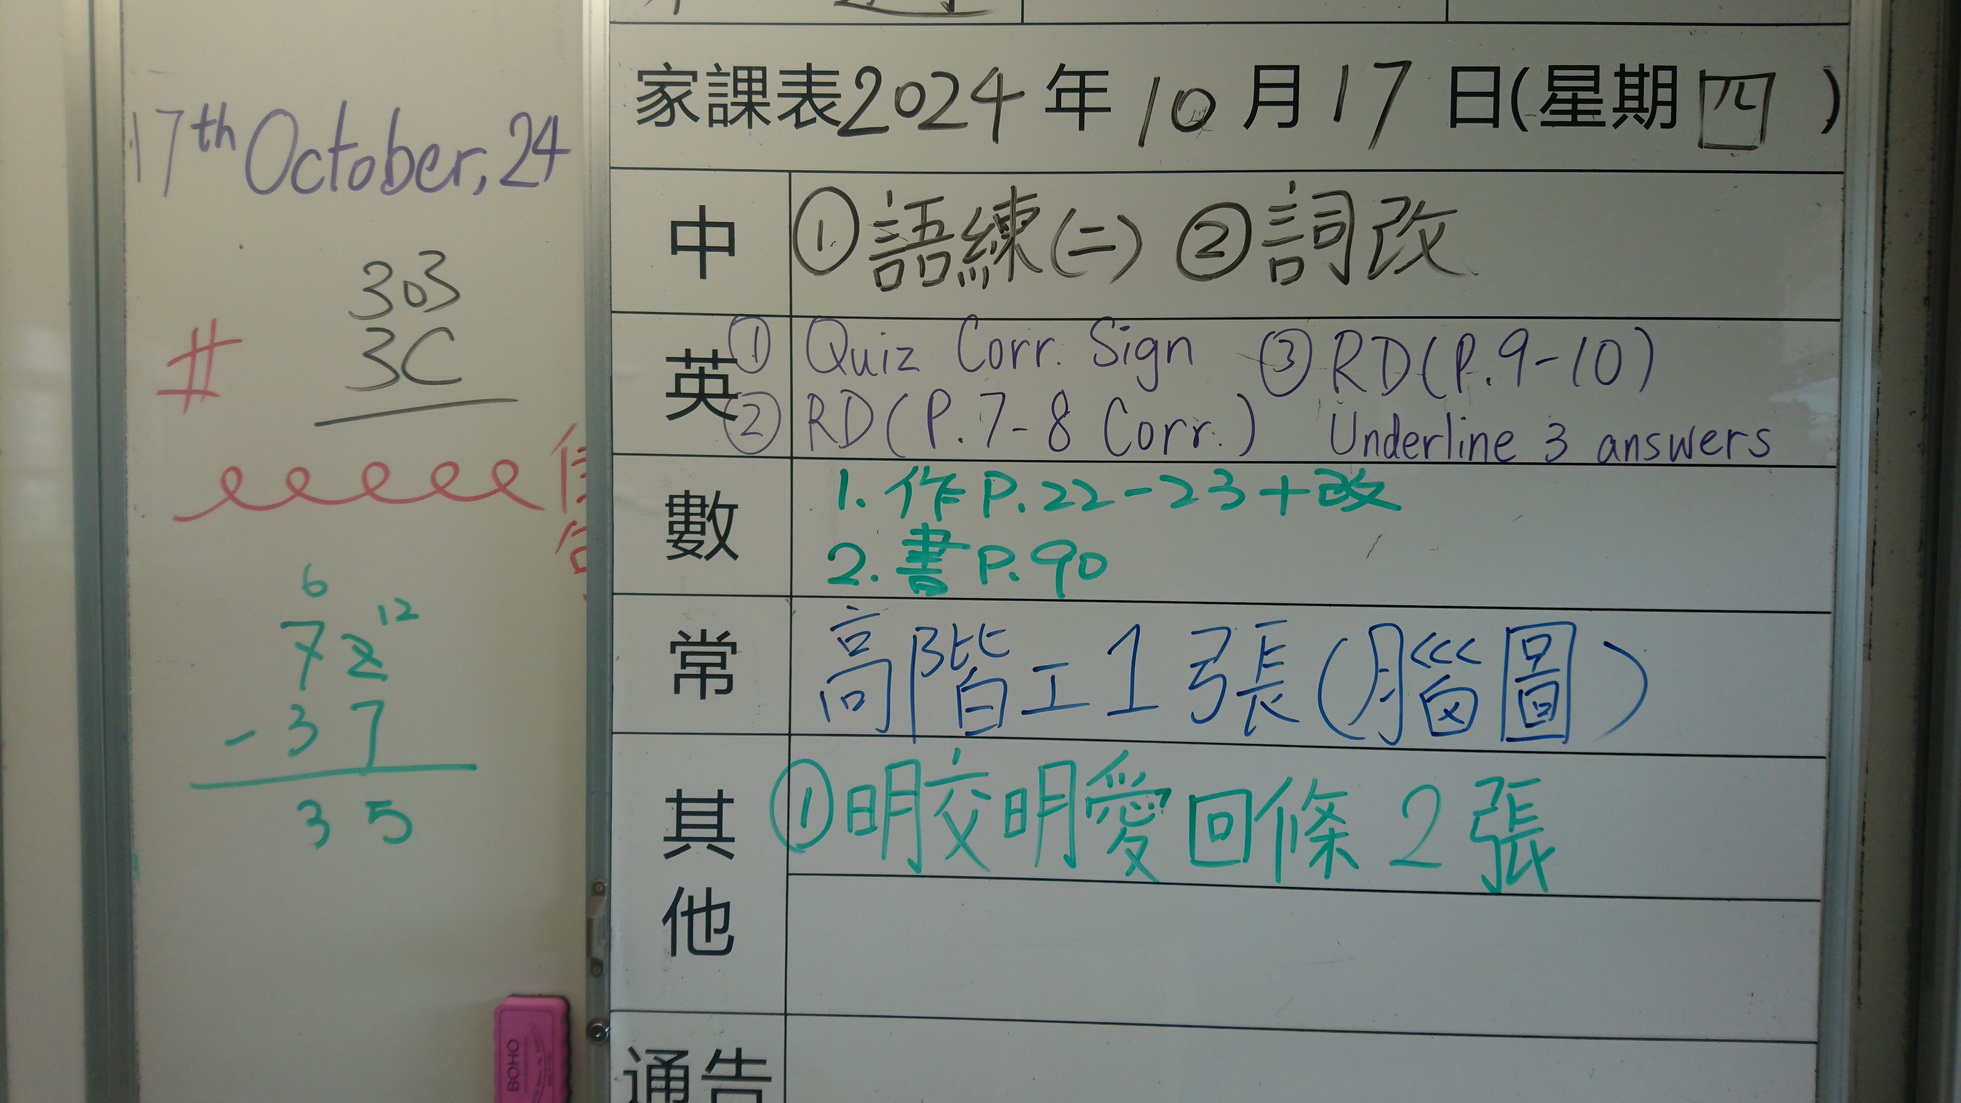 17th October, 24
303
3C
#
6
12
72
- 37
35
BOHO
家課表2024年10月17日(星期四)
中
①語練(二) ②詞改
英
① Quiz Corr. Sign ③ RD(P.9-10)
② RD(P.7-8 Corr.) Underline 3 answers
數
1. 作P.22-23+改
2. 書P.90
常
高階工1張(腦圖)
其他
①明交明愛回條2張
通告